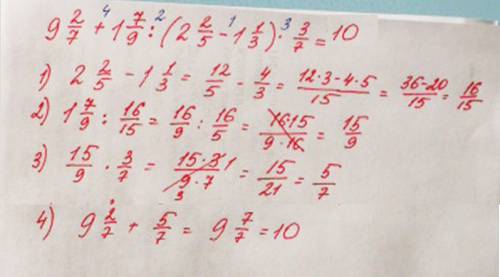 9 2/7 + 1 7/9 : (2 2/5 - 1 1/3) · 3/7 = 10
4 2 1 3
1) 2 2/5 - 1 1/3 = 12/5 - 4/3 = (12·3-4·5)/15 = (36-20)/15 = 16/15
2) 1 7/9 : 16/15 = 16/9 : 16/5 = (16·15)/(9·16) = 15/9
3) 15/9 · 3/7 = (15·3 1)/(9·7) 3 = 15/21 = 5/7
4) 9 2/7 + 5/7 = 9 7/7 = 10